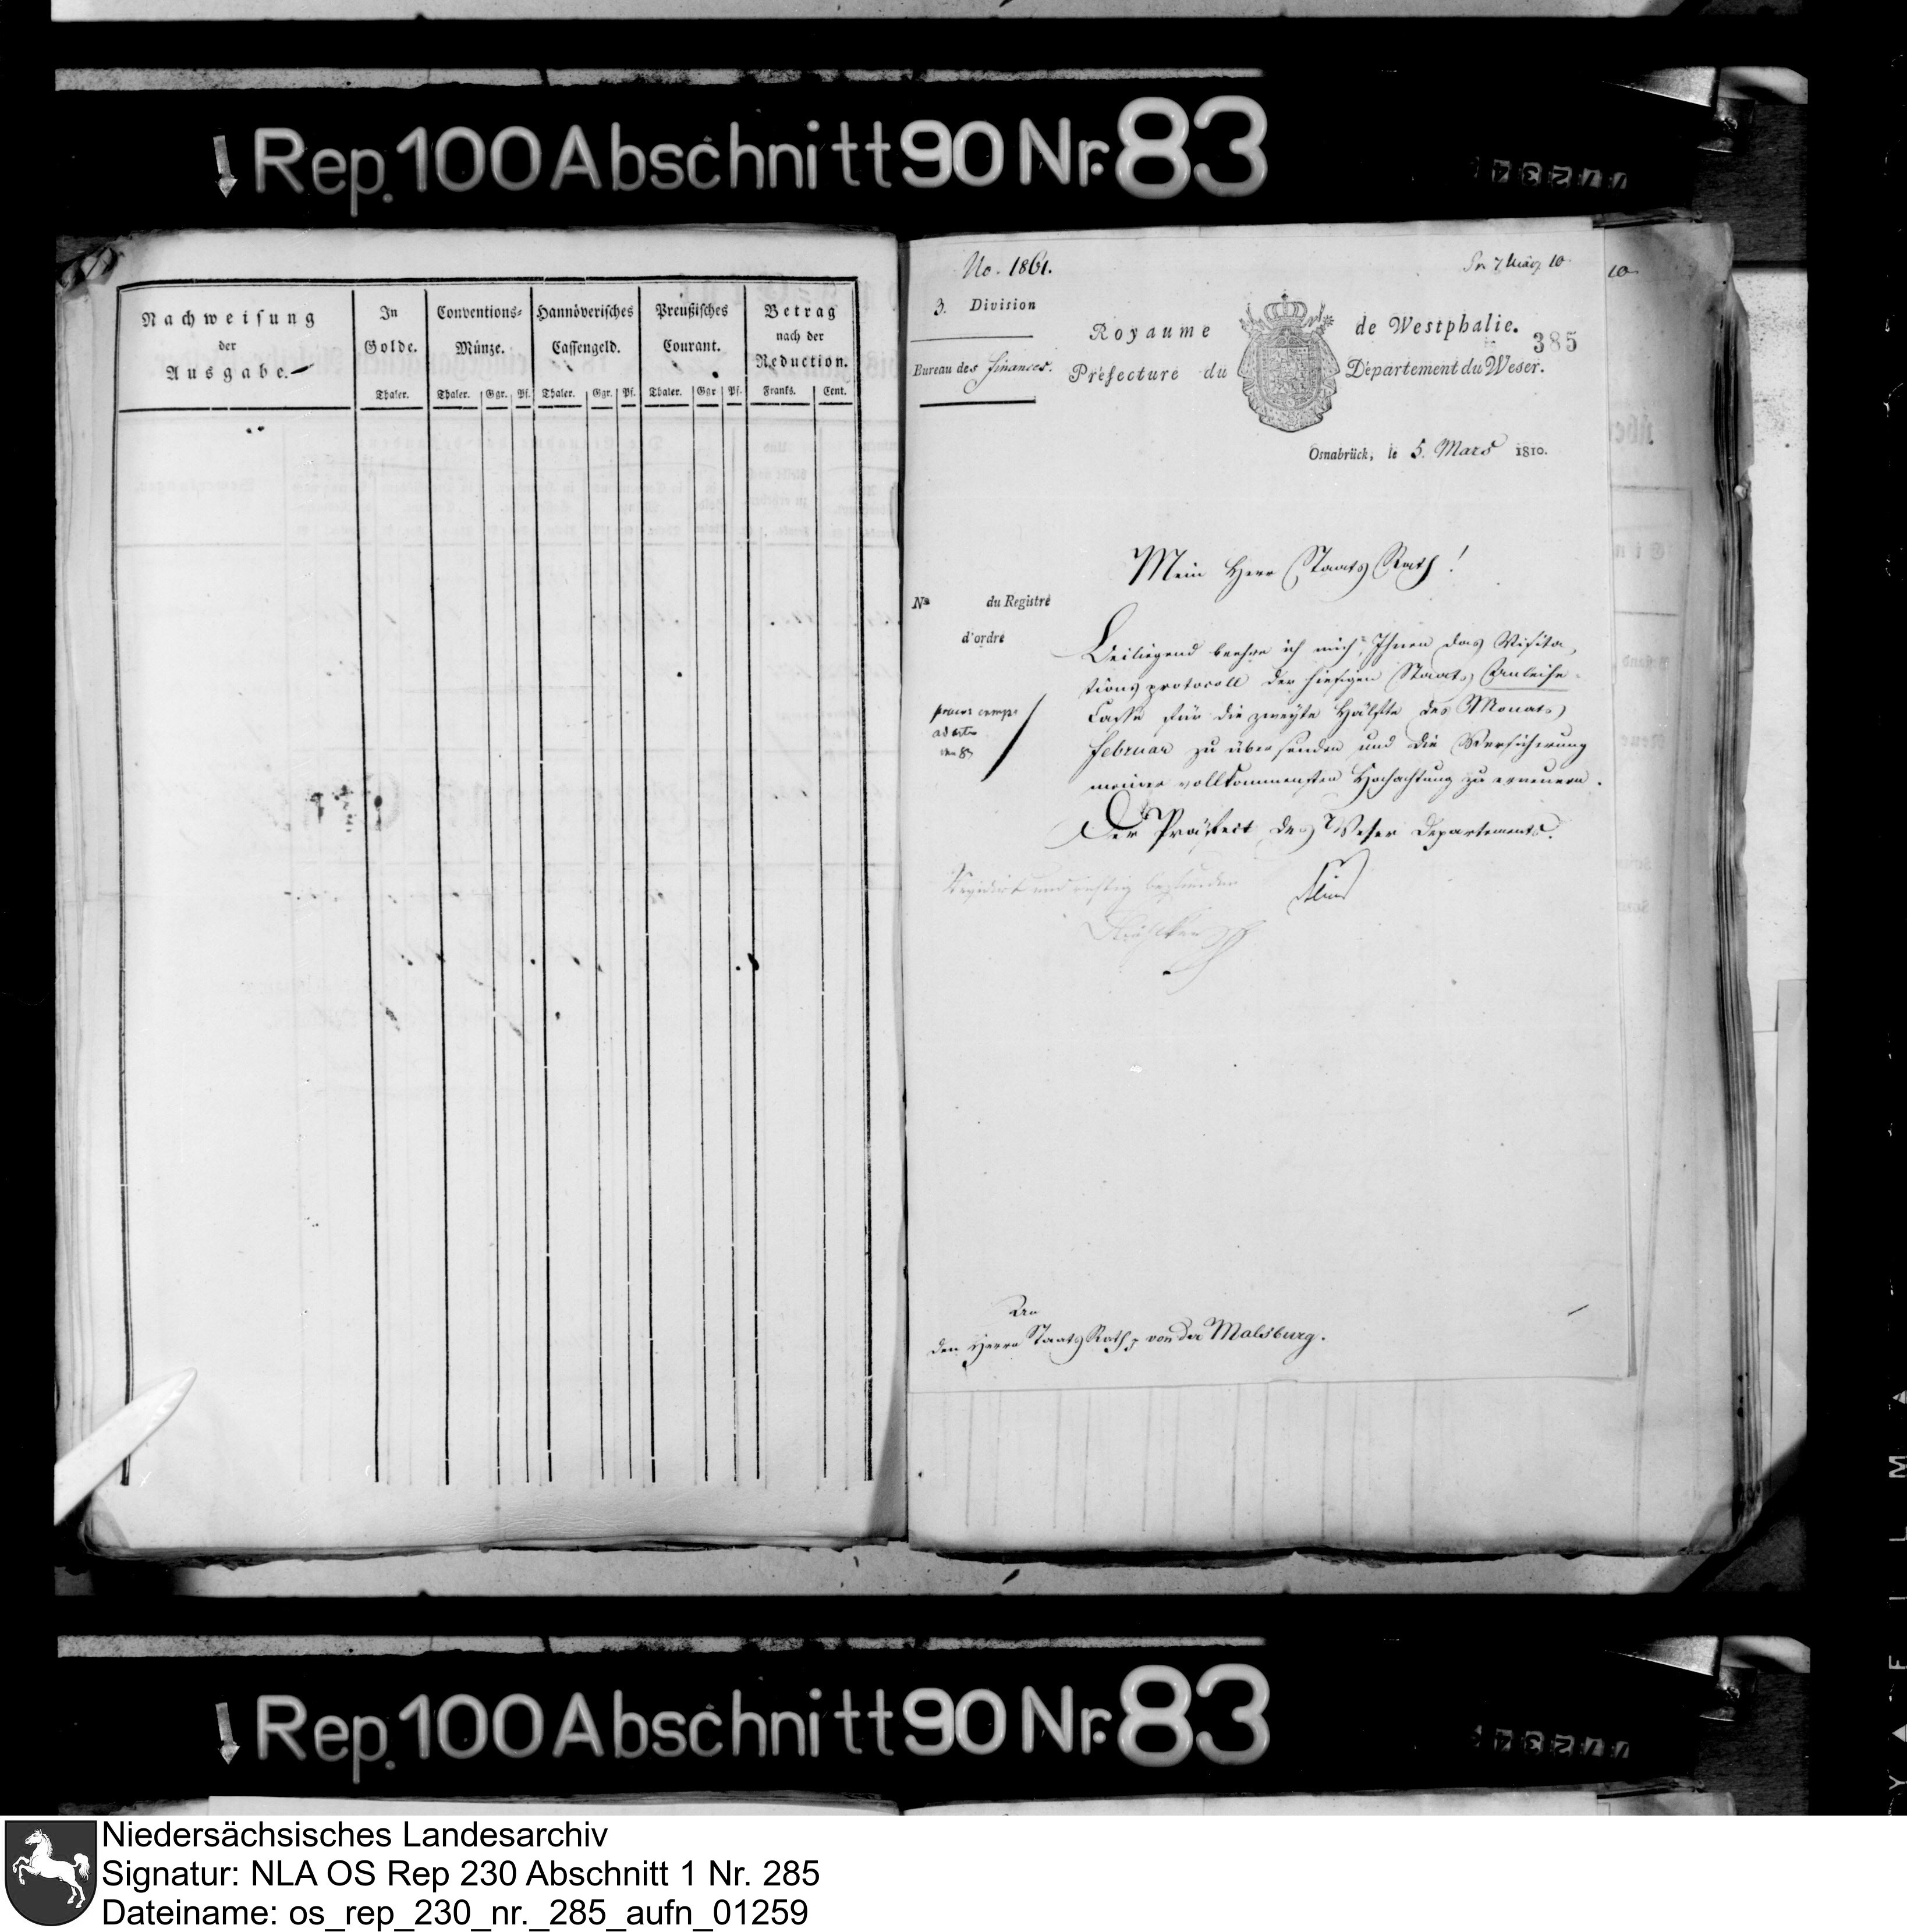 Rep. 100 Abschnitt 90 Nr. 83
Nachweisung
der
Ausgabe.
In
Golde.
Conventions-
Münze.
Hannöverisches
Cassengeld.
Preußisches
Courant.
Betrag
nach der
Reduction.
Thaler. Thaler. Ggr. Pf. Thaler. Ggr. Pf. Thaler. Ggr Pf. Franks. Cent.
No. 1861.
Pr. 7 März 10
10
3. Division
Bureau des finances.
Royaume de Westphalie.
385
Préfecture du Département du Weser.
Osnabrück, le 5. Mars 1810.
Mein Herr Staats Rath!
No du Registre
d'ordre
Beiliegend beehre ich mich, Ihnen das Visita-
tions protocoll der hiesigen Staats Anleihe
Casse für die zweyte Hälfte des Monats
Februar zu übersenden und die Versicherung
meiner vollkommensten Hochachtung zu erneuern.
Der Präfect des Weser Departements.
Revidirt und richtig befunden
An
den Herrn Staats Rath von der Malsburg.
Rep. 100 Abschnitt 90 Nr. 83
Niedersächsisches Landesarchiv
Signatur: NLA OS Rep 230 Abschnitt 1 Nr. 285
Dateiname: os_rep_230_nr._285_aufn_01259